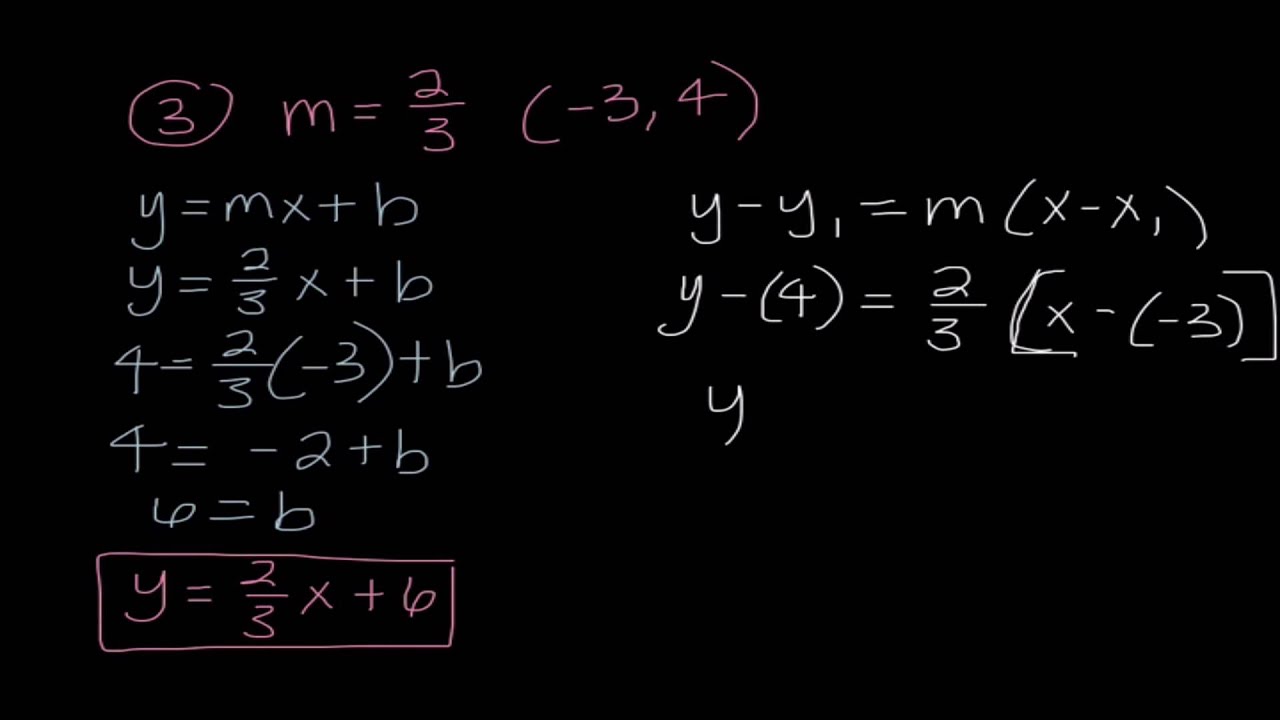 ③ m = 2/3 (-3, 4)
y = mx + b
y = 2/3 x + b
4 = 2/3 (-3) + b
4 = -2 + b
6 = b
y = 2/3 x + 6
y - y₁ = m(x - x₁)
y - (4) = 2/3 [x - (-3)]
y